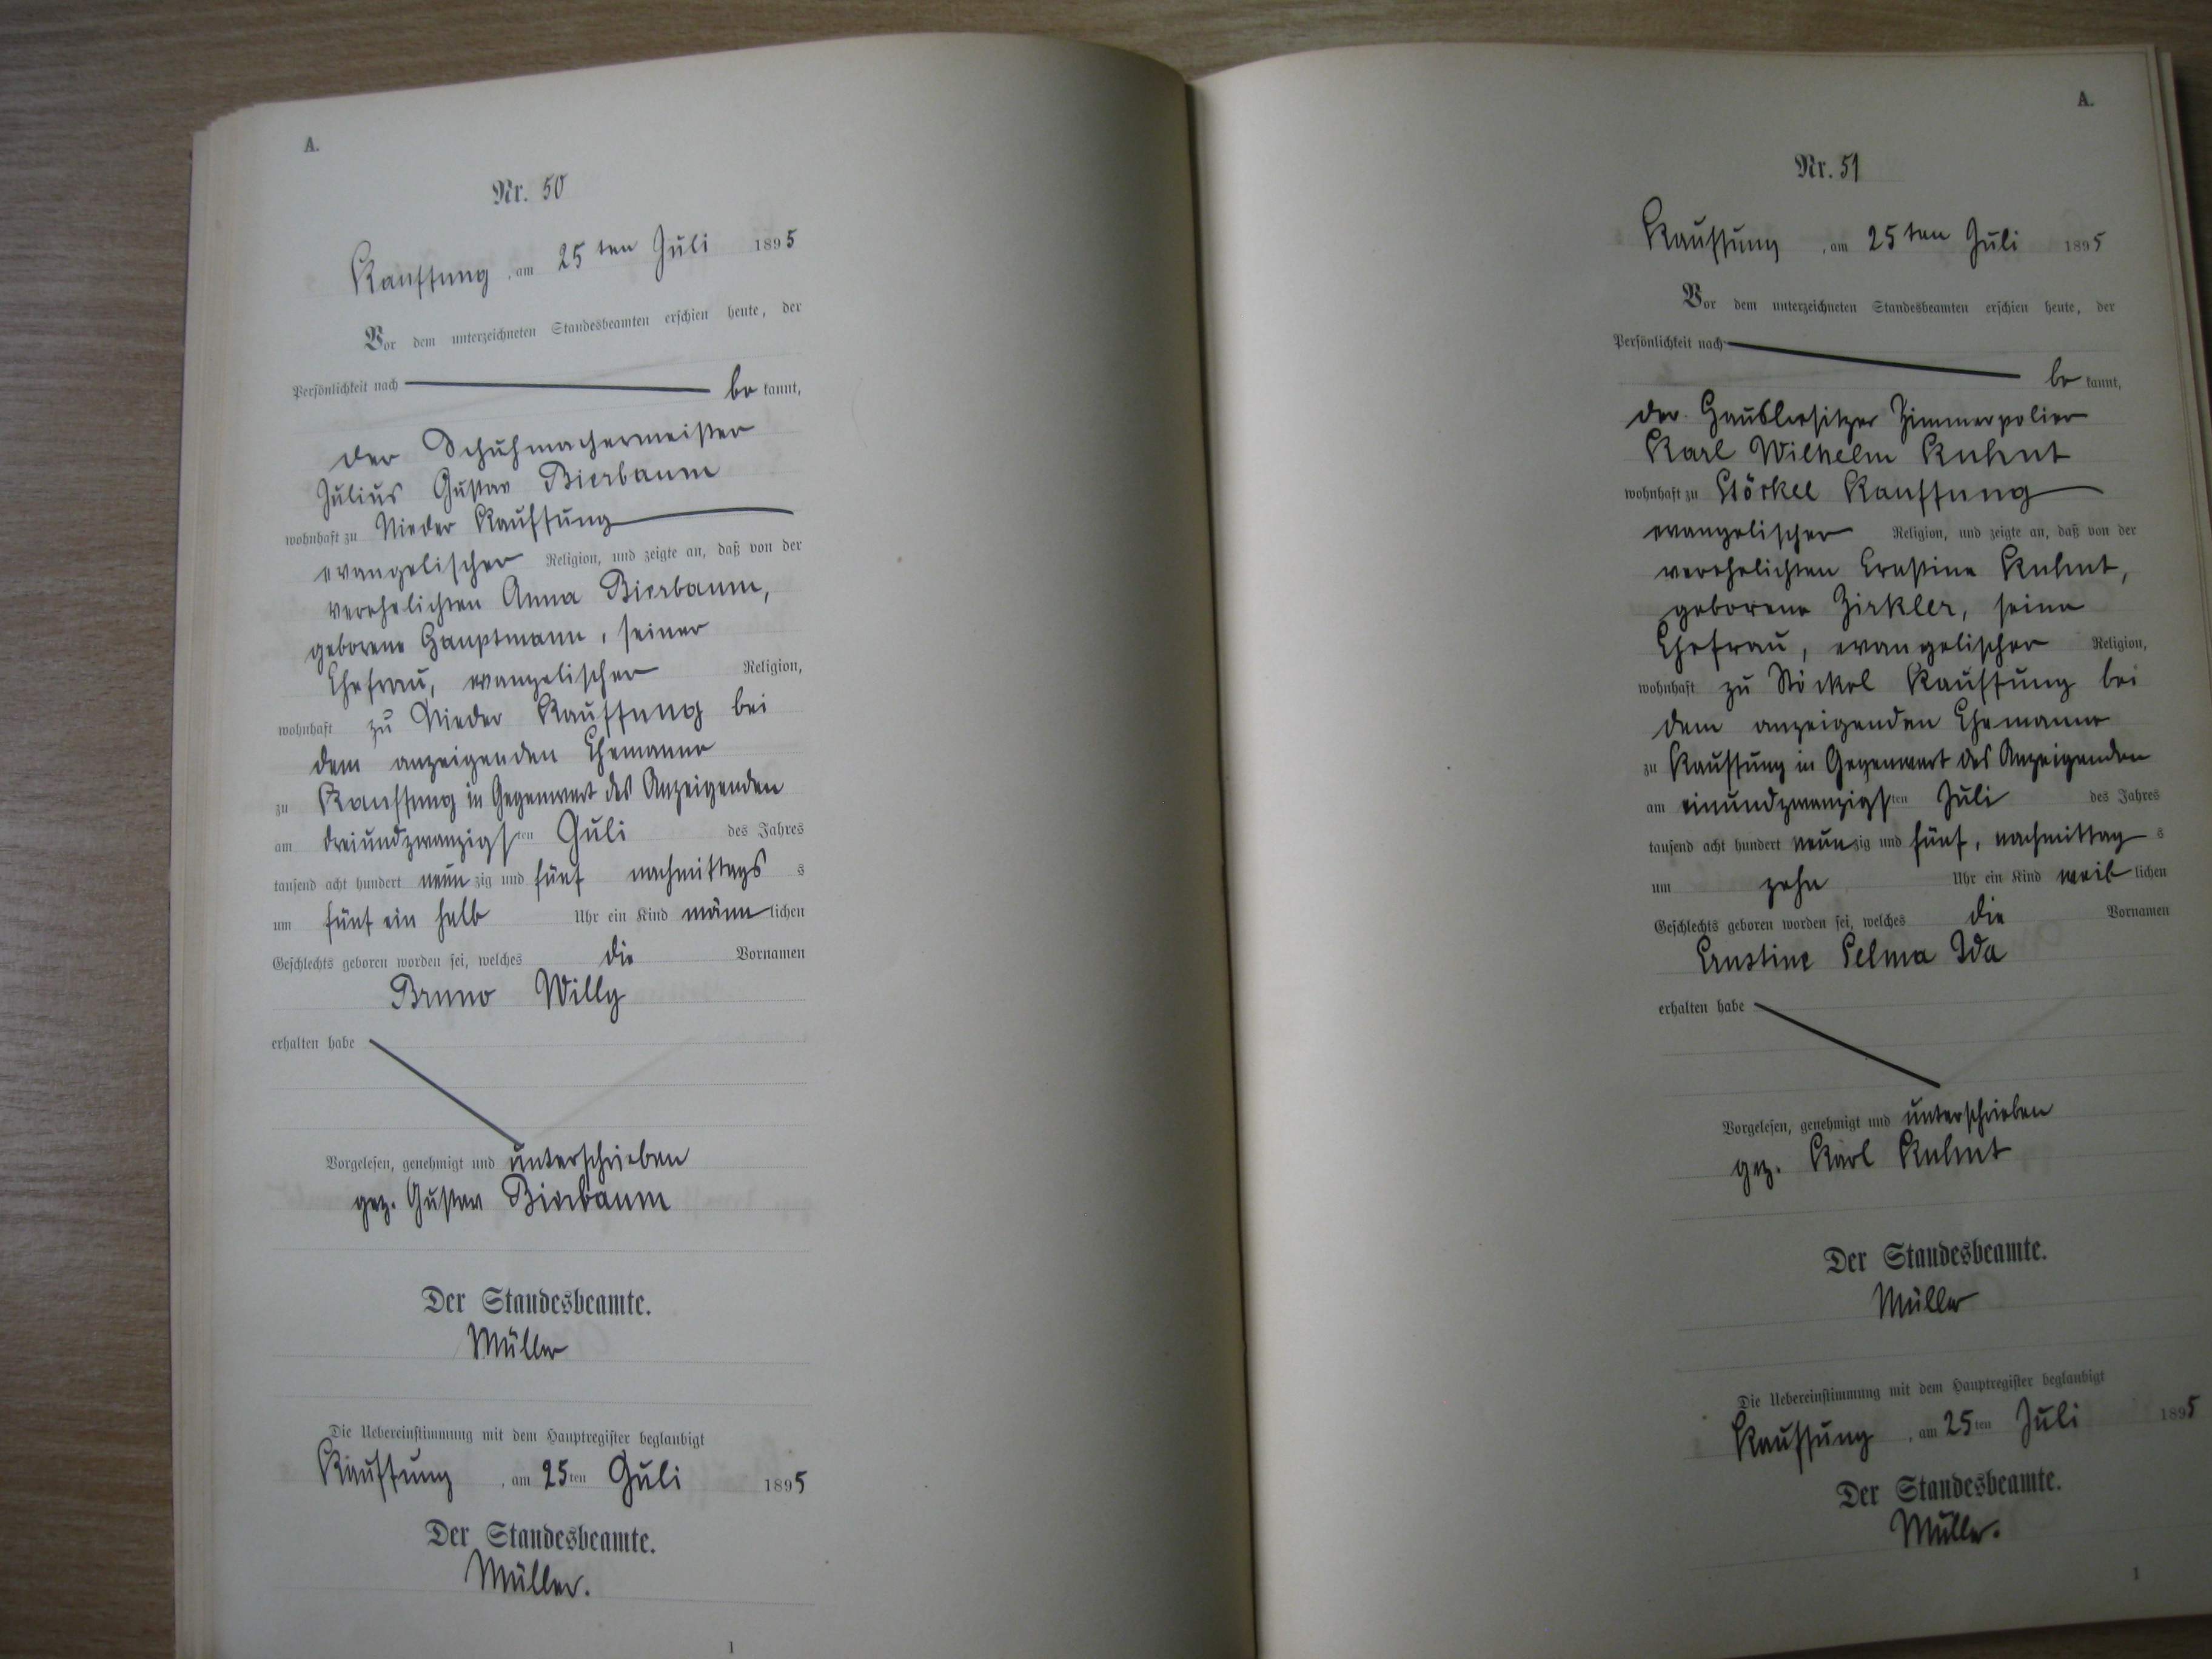 A.
Nr. 50
Kauffung, am 25ten Juli 1895
Vor dem unterzeichneten Standesbeamten erschien heute, der
Persönlichkeit nach be kannt,
der Schuhmachermeister
Julius Gustav Bierbaum
wohnhaft zu Nieder Kauffung
evangelischer Religion, und zeigte an, daß von der
verehelichten Anna Bierbaum,
geborene Hauptmann, seiner
Ehefrau, evangelischer Religion,
wohnhaft zu Nieder Kauffung bei
dem anzeigenden Ehemanne
zu Kauffung in Gegenwart des Anzeigenden
am dreiundzwanzigsten Juli des Jahres
tausend acht hundert neunzig und fünf nachmittags s
um fünf ein halb Uhr ein Kind männlichen
Geschlechts geboren worden sei, welches die Vornamen
Bruno Willy
erhalten habe
Vorgelesen, genehmigt und unterschrieben
gez. Gustav Bierbaum
Der Standesbeamte.
Müller
Die Uebereinstimmung mit dem Hauptregister beglaubigt
Kauffung, am 25ten Juli 1895
Der Standesbeamte.
Müller.
1
A.
Nr. 51
Kauffung, am 25ten Juli 1895
Vor dem unterzeichneten Standesbeamten erschien heute, der
Persönlichkeit nach
be kannt,
der Hausbesitzer Zimmerpolier
Karl Wilhelm Kuhnt
wohnhaft zu Stöckel Kauffung
evangelischer Religion, und zeigte an, daß von der
verehelichten Ernstine Kuhnt,
geborene Zirkler, seine
Ehefrau, evangelischer Religion,
wohnhaft zu Stöckel Kauffung bei
dem anzeigenden Ehemanne
zu Kauffung in Gegenwart des Anzeigenden
am einundzwanzigsten Juli des Jahres
tausend acht hundert neunzig und fünf, nachmittag s
um zehn Uhr ein Kind weiblichen
Geschlechts geboren worden sei, welches die Vornamen
Ernstine Selma Ida
erhalten habe
Vorgelesen, genehmigt und unterschrieben
gez. Karl Kuhnt
Der Standesbeamte.
Müller
Die Uebereinstimmung mit dem Hauptregister beglaubigt
Kauffung, am 25ten Juli 1895
Der Standesbeamte.
Müller.
1